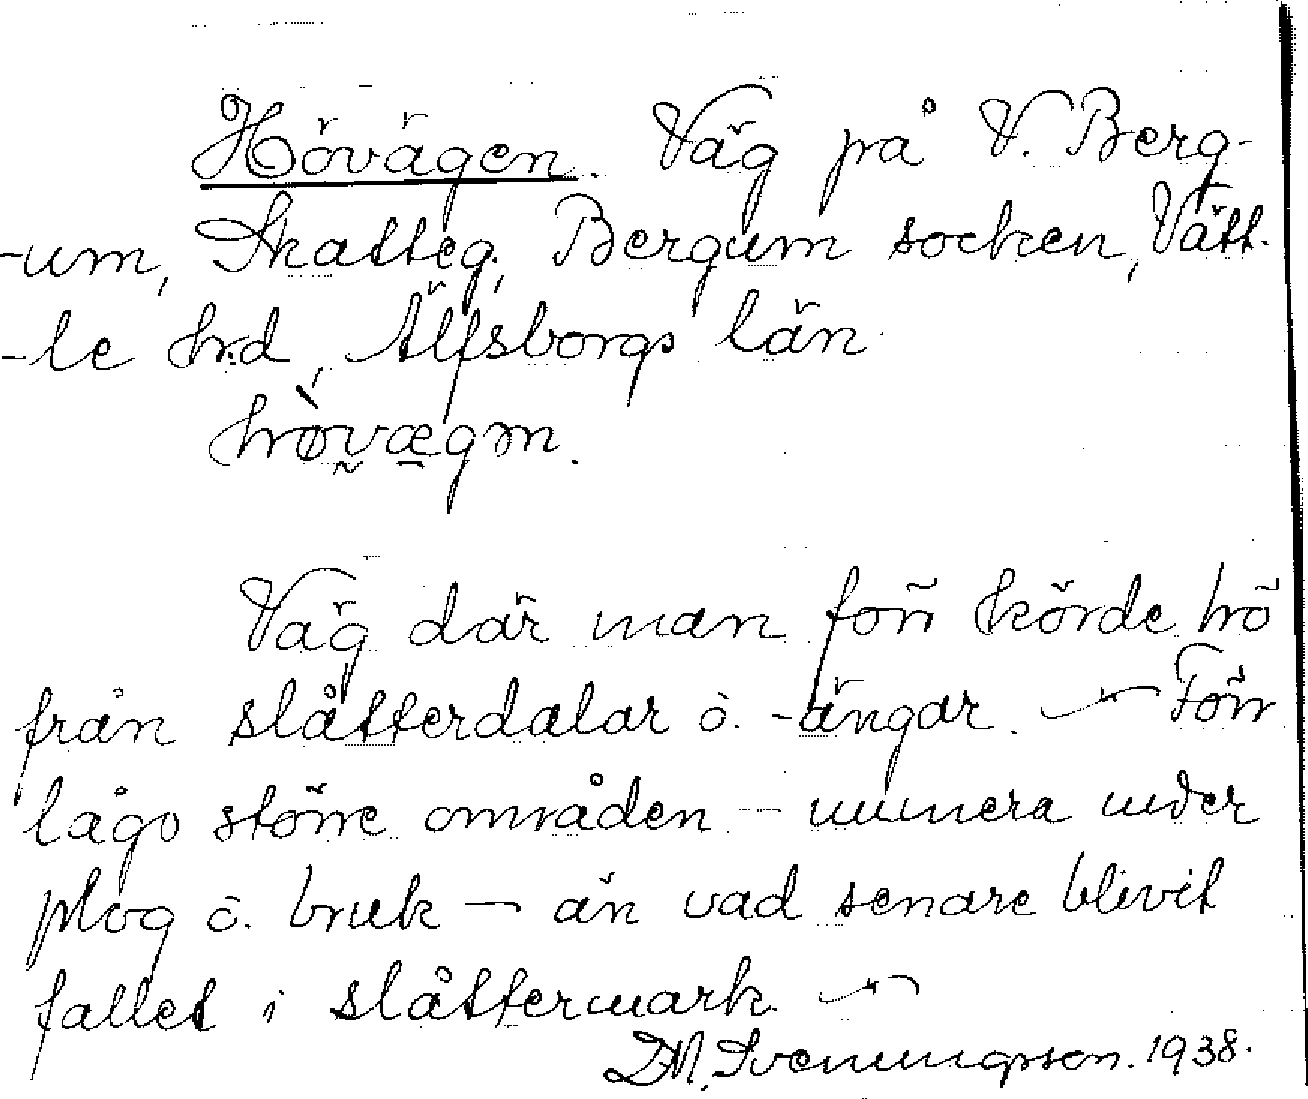 Hövägen. Väg på V. Berg-
-um, Skatteg, Bergum socken, Vätt-
-le hrd, Älfsborgs län
hø̀vægən.
Väg där man förr körde hö
från slåtterdalar o. -ängar. — Förr
lågo större områden – numera under
plog o. bruk – än vad senare blivit
fallet i slåttermark —
D.M. Svenungsson. 1938.